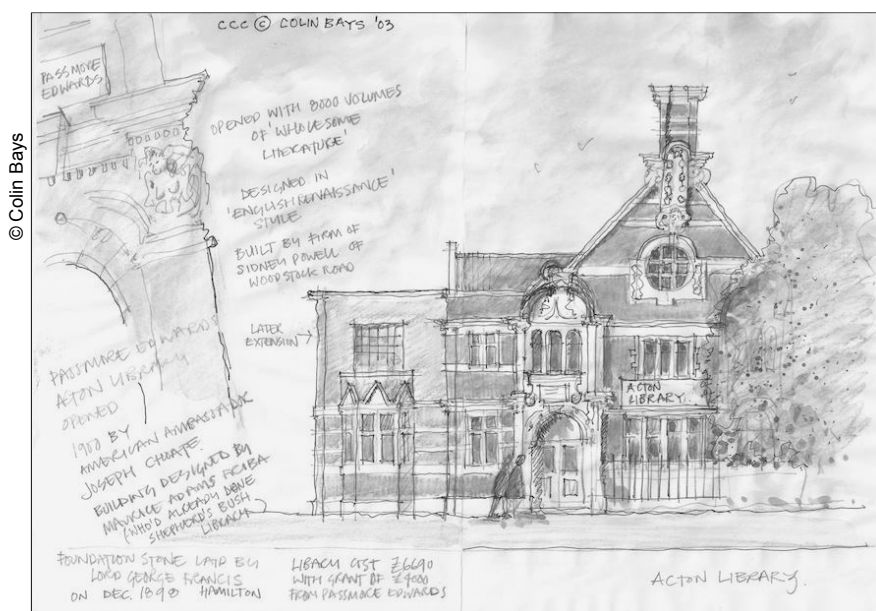 © Colin Bays
CCC © COLIN BAYS '03
PASSMORE
EDWARDS
OPENED WITH 8000 VOLUMES
OF 'WHOLESOME
LITERATURE'
DESIGNED IN
'ENGLISH RENAISSANCE'
STYLE
BUILT BY FIRM OF
SIDNEY POWELL OF
WOODSTOCK ROAD
LATER
EXTENSION
PASSMORE EDWARDS
ACTON LIBRARY
OPENED
1900 BY
AMERICAN AMBASSADOR
JOSEPH CHOATE.
BUILDING DESIGNED BY
MAURICE ADAMS FRIBA
(WHO'D ALREADY DONE
SHEPHERD'S BUSH
LIBRARY
ACTON
LIBRARY.
FOUNDATION STONE LAID BY
LORD GEORGE FRANCIS
ON DEC. 1898 HAMILTON
LIBRARY COST £6690
WITH GRANT OF £4000
FROM PASSMORE EDWARDS
ACTON LIBRARY.